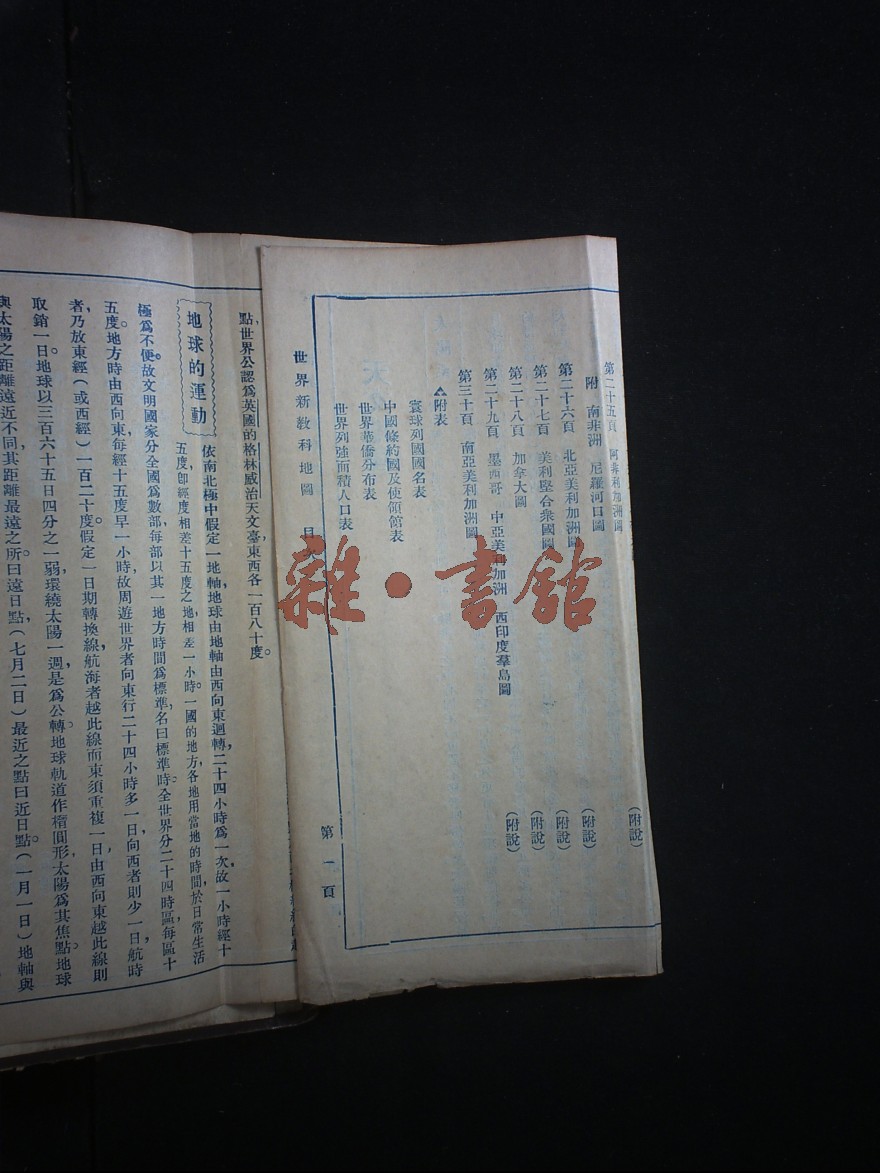 第二十五頁 阿非利加洲圖 (附說)
附 南非洲 尼羅河口圖 (附說)
第二十六頁 北亞美利加洲圖 (附說)
第二十七頁 美利堅合衆國圖 (附說)
第二十八頁 加拿大圖 (附說)
第二十九頁 墨西哥 中亞美利加洲 西印度羣島圖
第三十頁 南亞美利加洲圖
附表
寰球列國國名表
中國條約國及使領館表
世界華僑分布表
世界列強面積人口表
世界新教科地圖 目 第一頁
點,世界公認爲英國的格林威治天文臺,東西各一百八十度。
地球的運動
依南北極中假定一地軸,地球由地軸由西向東迴轉,二十四小時爲一次,故一小時經十
五度,卽經度相差十五度之地,相差一小時。一國的地方,各地用當地的時間,於日常生活
極爲不便。故文明國家分全國爲數部,每部以其一地方時間爲標準,名曰標準時。全世界分二十四時區,每區十
五度。地方時由西向東,每經十五度早一小時,故周遊世界者向東行二十四小時多一日,向西者則少一日,航時
者,乃放東經(或西經)一百二十度假定一日期轉換線,航海者越此線而東須重複一日,由西向東越此線則
取銷一日。地球以三百六十五日四分之一弱,環繞太陽一週,是爲公轉。地球軌道作橢圓形,太陽爲其焦點,地球
與太陽之距離遠近不同,其距離最遠之所曰遠日點(七月二日)最近之點曰近日點(一月一日)地軸與
雜·書館